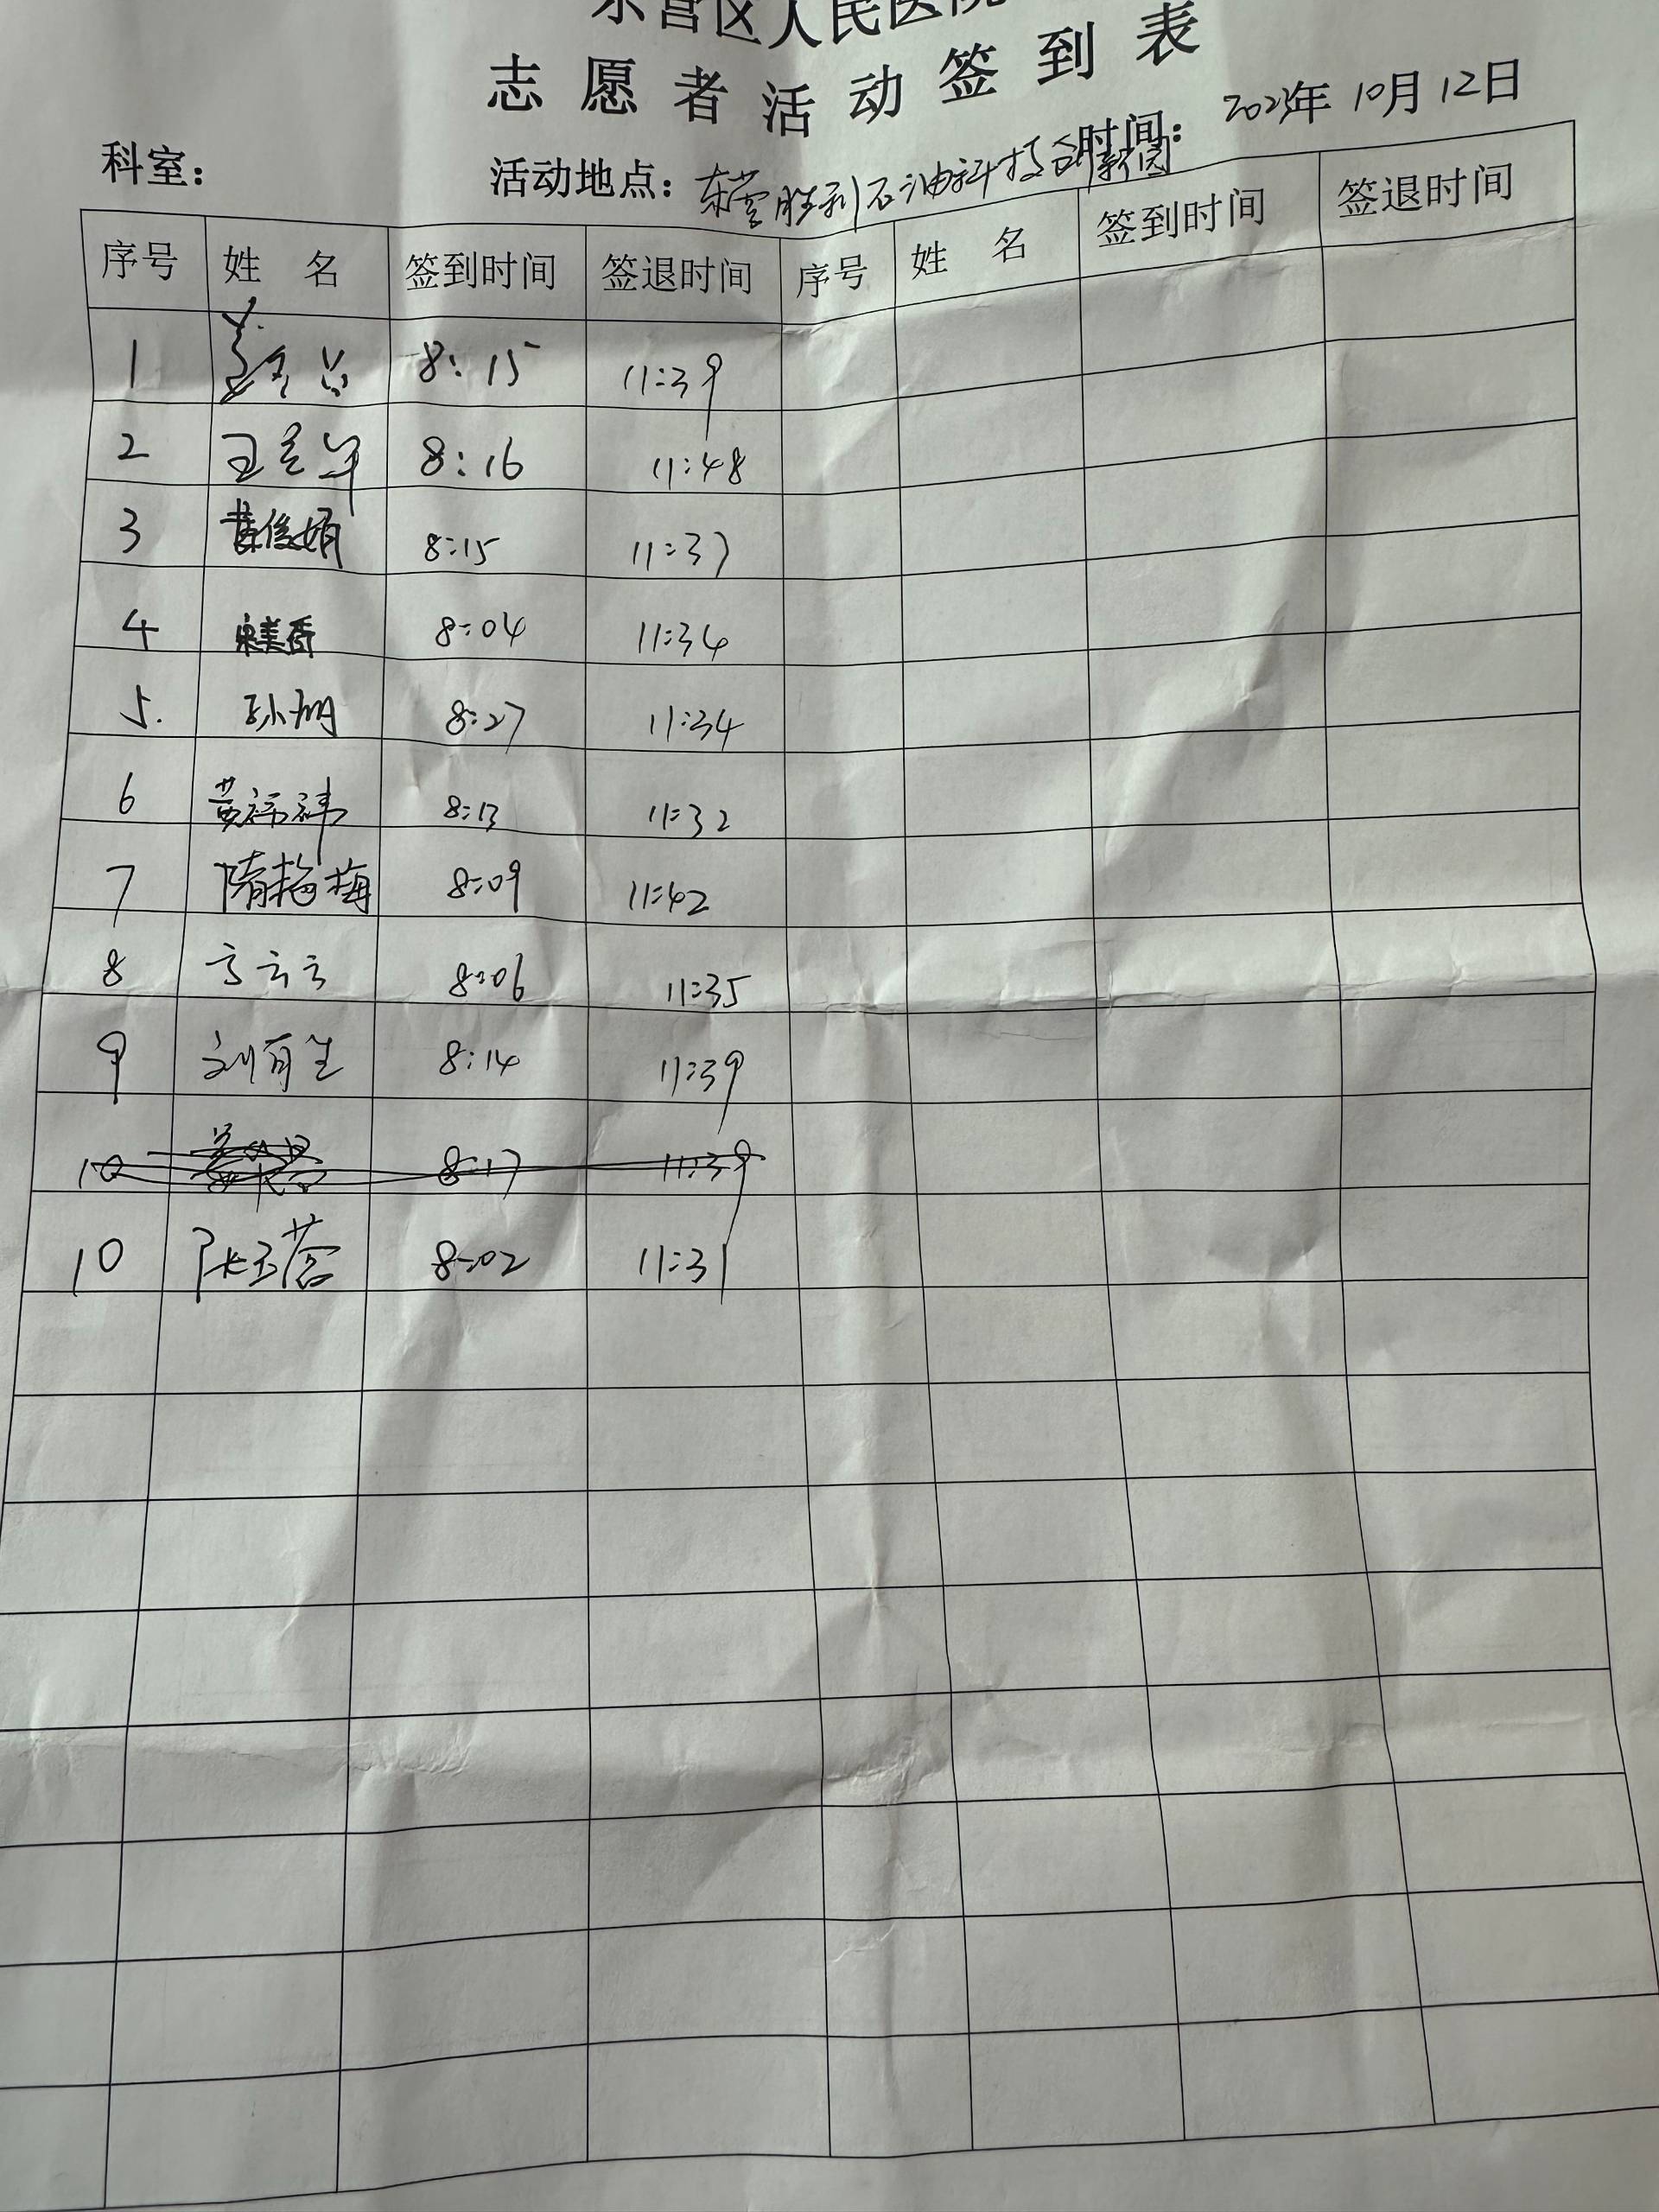 东营区人民医院
志愿者活动签到表
科室： 活动地点：东营胜利石油科技创新园 时间：2023年10月12日
序号 姓名 签到时间 签退时间 序号 姓名 签到时间 签退时间
1 8:15 11:39
2 8:16 11:48
3 俊娟 8:15 11:37
4 宋美香 8:04 11:34
5. 孙 8:27 11:34
6 黄 8:13 11:32
7 隋艳梅 8:09 11:42
8 8:06 11:35
9 刘百生 8:14 11:39
10 8:17 11:39
10 张玉蓉 8:02 11:31